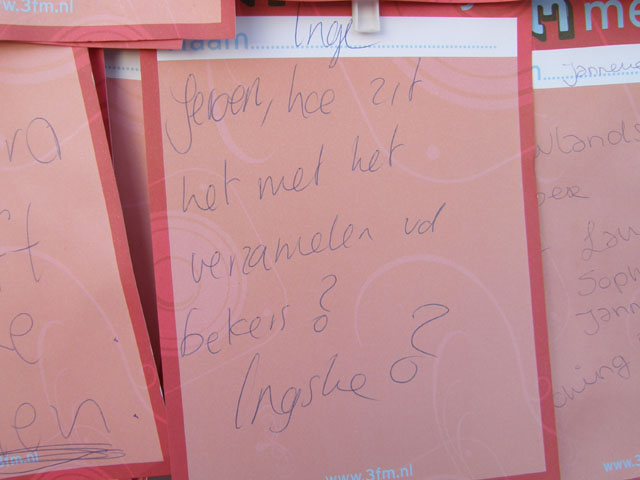 www.3fm.nl
me
naam Inge
Jeroen, hoe zit
het met het
verzamelen vd
bekers?
Ingske?
www.3fm.nl
ra
ft
e
en
3fm.nl
Janneke
wlands
Lau
Soph
Jann
www.3fm.nl